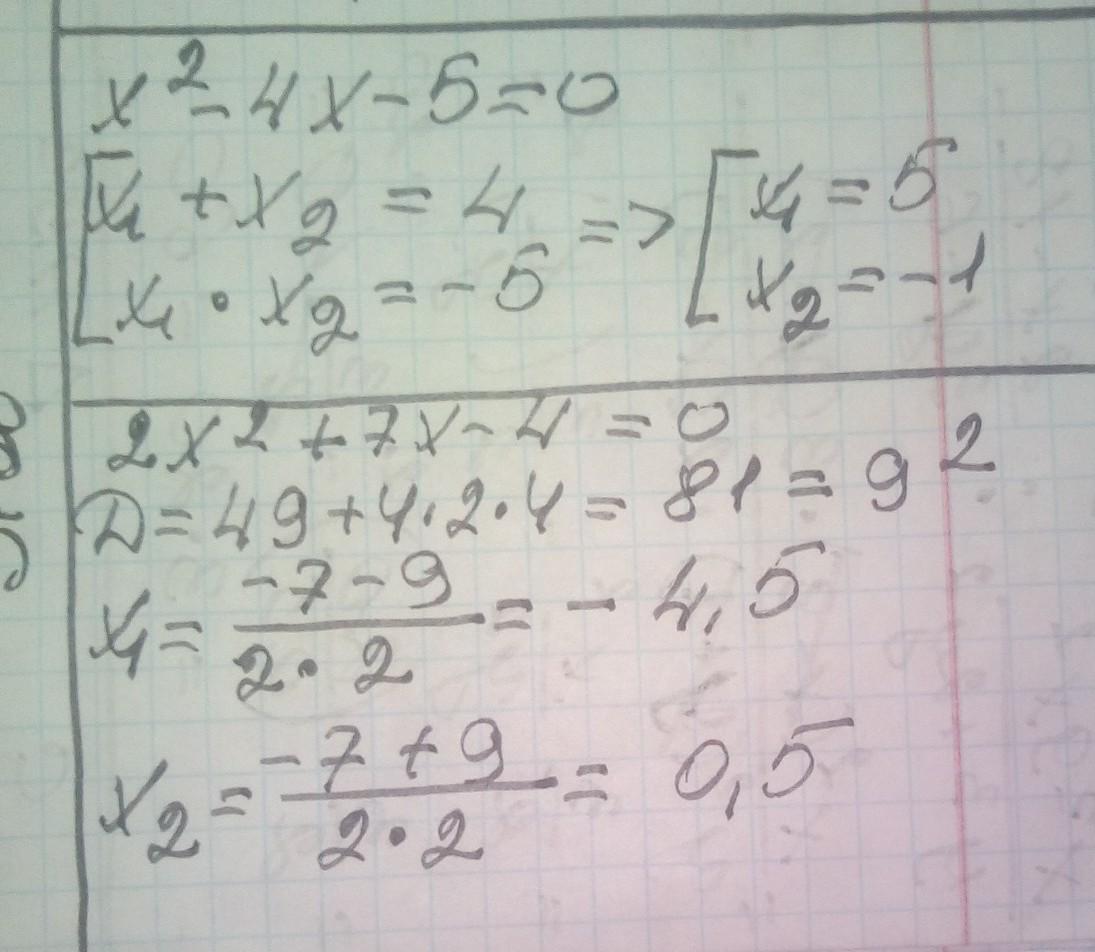 x² - 4x - 5 = 0
[x₁ + x₂ = 4 => [x₁ = 5
x₁ · x₂ = -5 x₂ = -1
2x² + 7x - 4 = 0
D = 49 + 4·2·4 = 81 = 9²
x₁ = (-7 - 9)/(2·2) = -4,5
x₂ = (-7 + 9)/(2·2) = 0,5